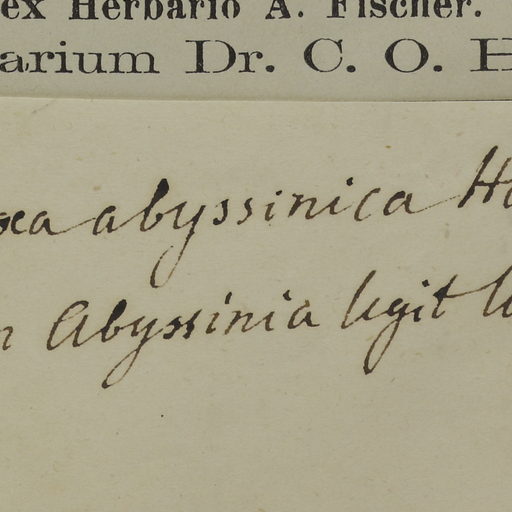 ex Herbario A. Fischer.
arium Dr. C. O. H
abyssinica
Abyssinia legit